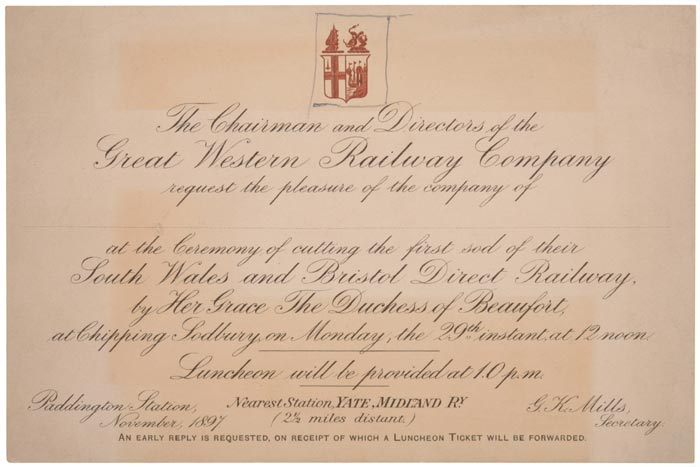 The Chairman and Directors of the
Great Western Railway Company
request the pleasure of the company of
at the Ceremony of cutting the first sod of their
South Wales and Bristol Direct Railway,
by Her Grace The Duchess of Beaufort,
at Chipping Sodbury, on Monday, the 29th instant, at 12 noon.
Luncheon will be provided at 1.0 p.m.
Paddington Station,
November, 1897
Nearest Station, YATE, MIDLAND RY.
(2½ miles distant.)
G. K. Mills,
Secretary.
AN EARLY REPLY IS REQUESTED, ON RECEIPT OF WHICH A LUNCHEON TICKET WILL BE FORWARDED.